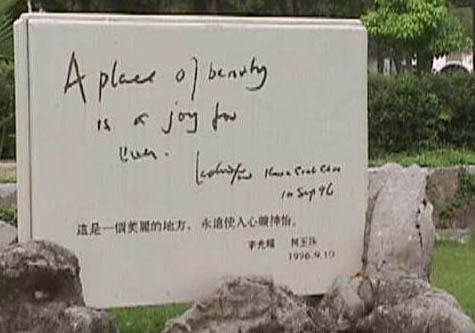 A place of beauty
is a joy for
ever.
Kwa Geok Choo
10 Sep 96
這是一個美麗的地方,永遠使人心曠神怡。
李光耀
1996.9.10